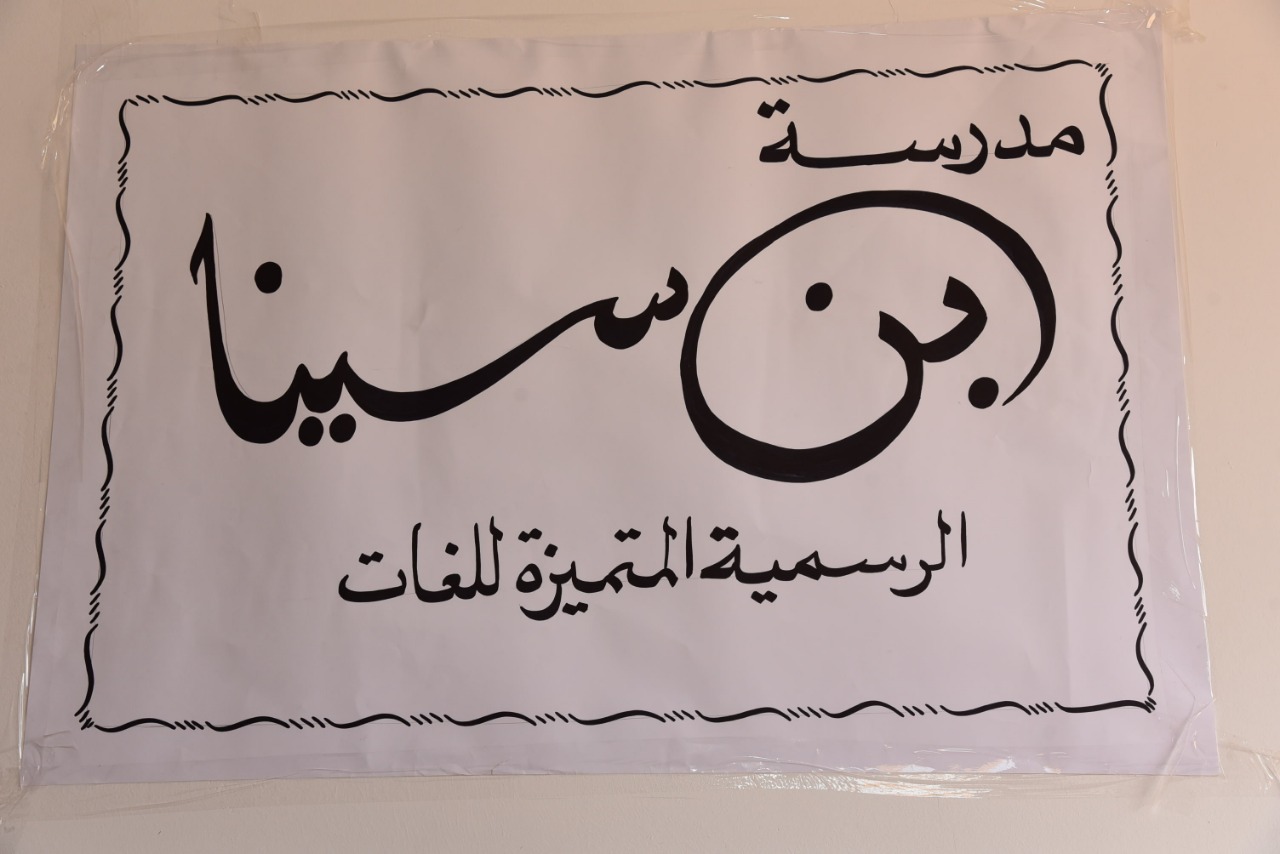 مدرسة
ابن سينا
الرسمية المتميزة للغات